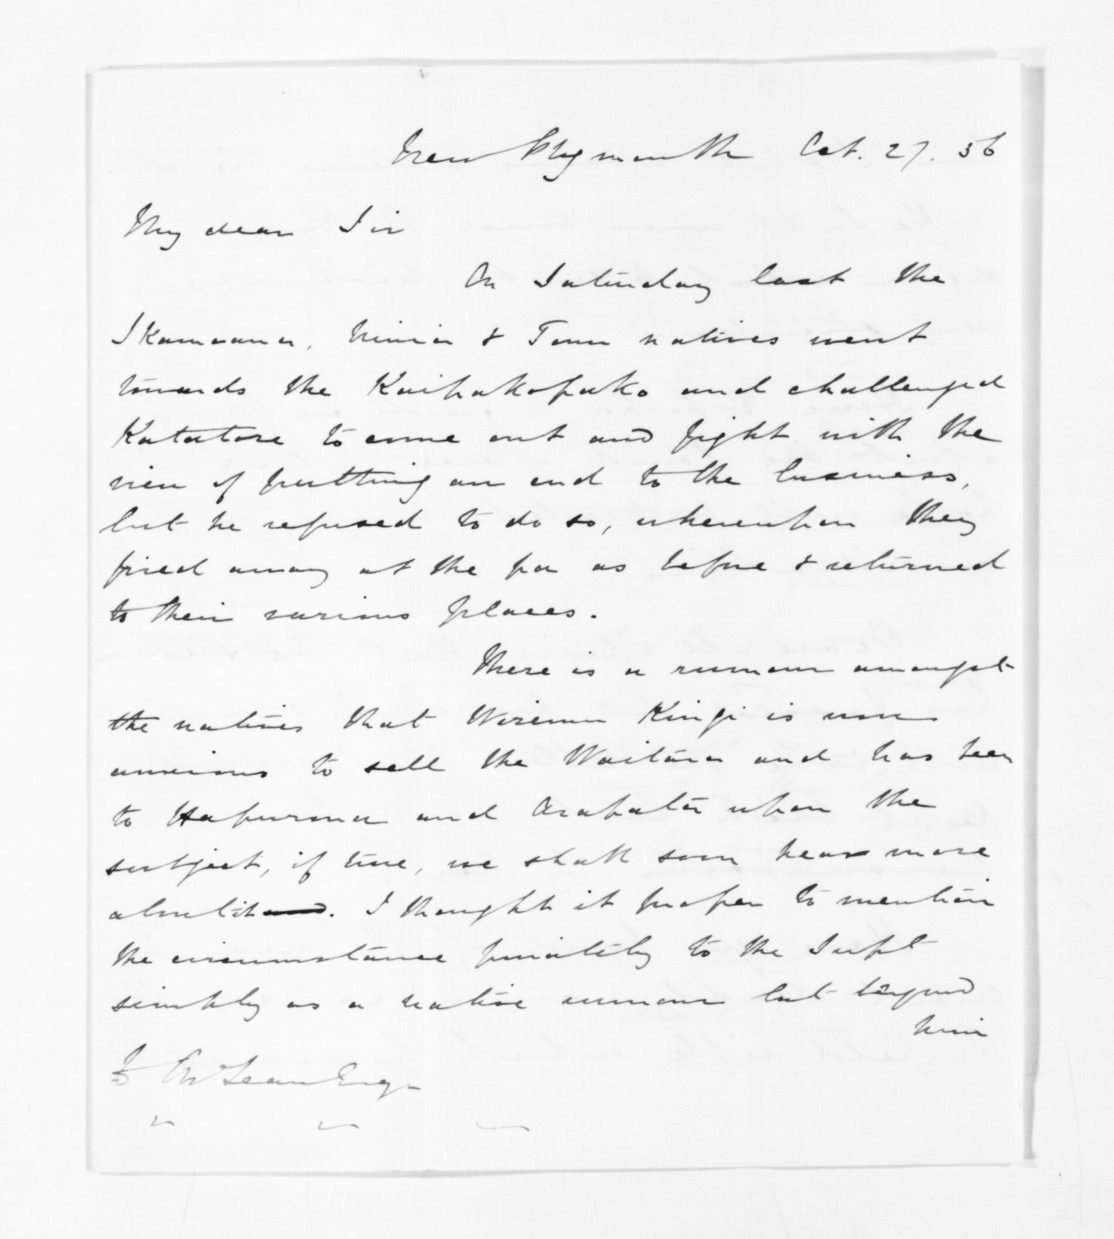 New Plymouth Oct. 27. 56
My dear Sir
On Saturday last the
Ikamoana, Ninia & Town natives went
towards the Kaipakopako and challenged
Katatore to come out and fight with the
view of putting an end to the business,
but he refused to do so, whereupon they
fired away at the pa as before & returned
to their various places.
There is a rumour amongst
the natives that Wiremu Kingi is now
anxious to sell the Waitara and has been
to Hapurona and Arapata upon the
subject, if true, we shall soon hear more
about it. I thought it proper to mention
the circumstance privately to the Supt
simply as a native rumour but beyond
him
D McLean Esqr